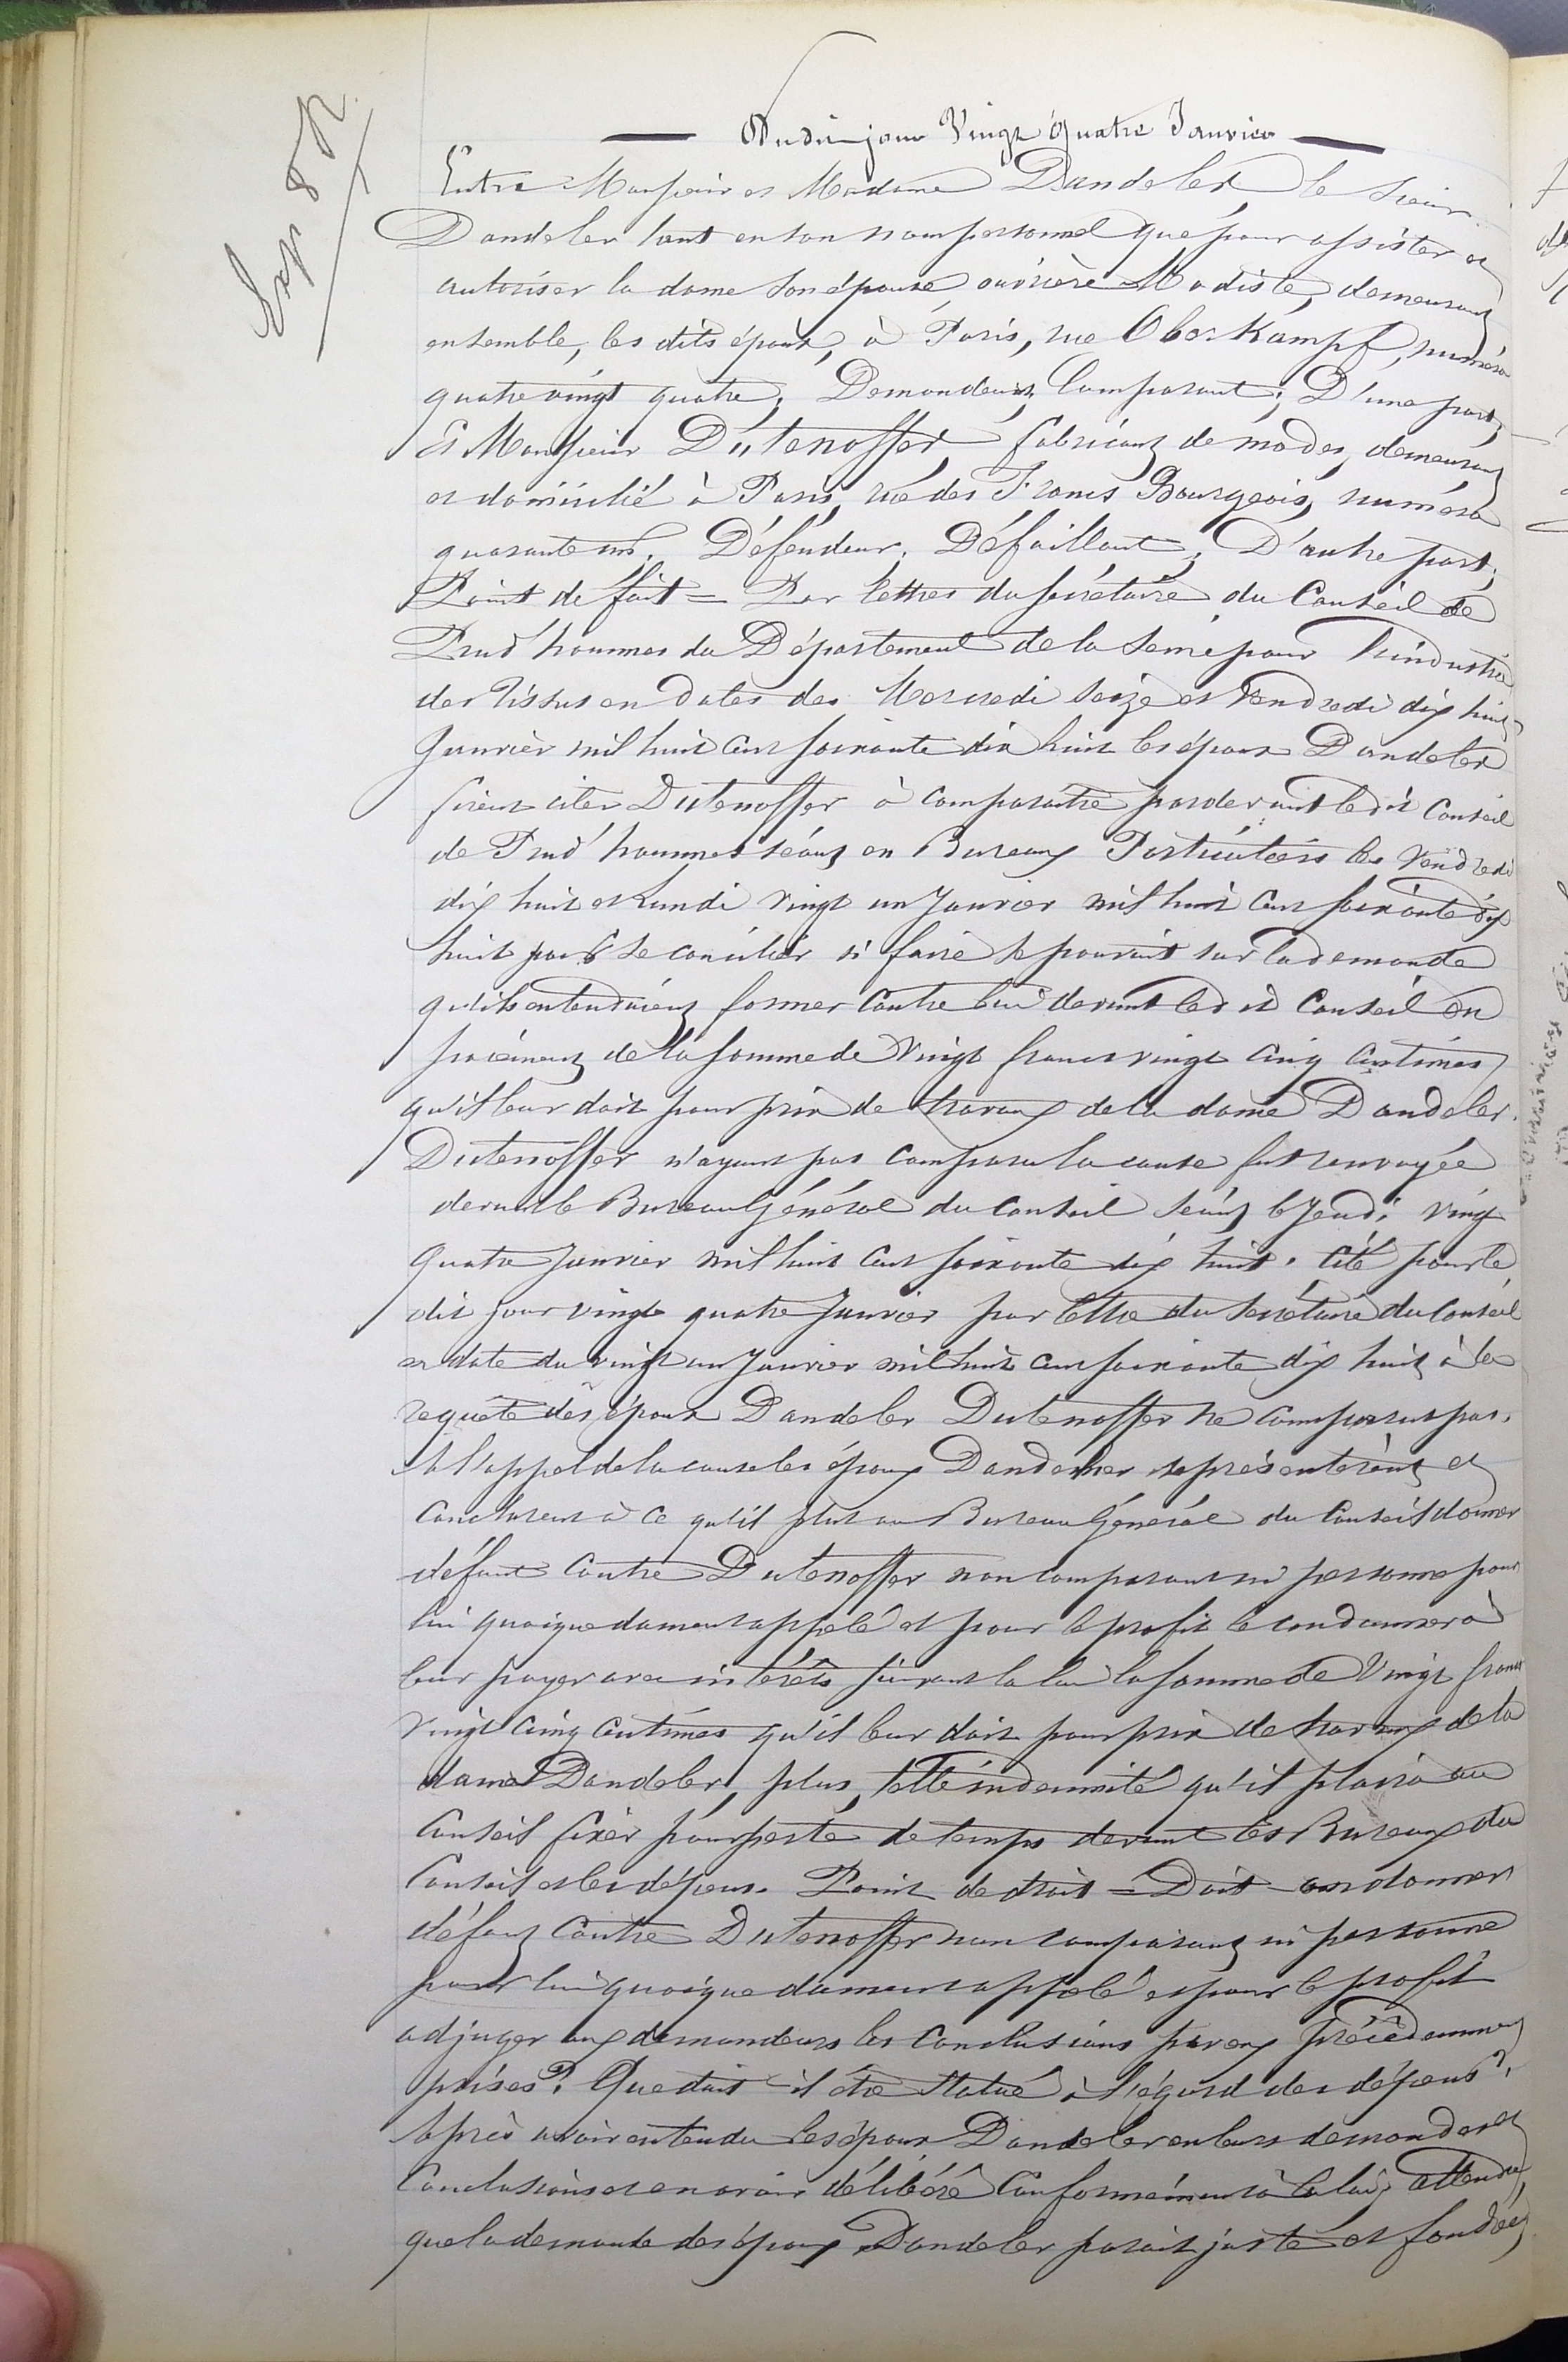 Exp 8 R.
Du dit jour Vingt Quatre Janvier
Entre Monsieur et Madame Dandeler le sieur
Dandeler tant en son nom personnel que pour assister et
autoriser la dame son épouse ouvrière Modiste, demeurant
ensemble, les dits époux, à Paris, rue Oberkampf, numéro
quatre vingt quatre; Demandeurs; Comparant; D'une part;
Et Monsieur Dutenoffer, fabricant de modes, demeurant
et domicilié à Paris, rue des Francs Bourgeois, numéro
quarante un. Défendeur; Défaillant; D'autre part;
Point de fait = Par lettres du secrétaire du Conseil de
Prud'hommes du Département de la Seine pour l'industrie
des Tissus en dates des Mercredi seize et Vendredi dix huit
Janvier mil huit cent soixante dix huit les époux Dandeler
firent citer Dutenoffer à comparaitre pardevant le dit Conseil
de Prud'hommes séant en Bureaux Particuliers les Vendredi
dix huit et Lundi vingt un Janvier mil huit cent soixante dix
huit pour se concilier si faire se pouvait sur la demande
qu'ils entendaient former contre lui devant le dit Conseil en
paiement de la somme de Vingt francs vingt cinq centimes
qu'il leur doit pour prix de travaux de la dame Dandeler.
Dutenoffer n'ayant pas comparu la cause fut renvoyée
devant le Bureau Général du Conseil séant le Jeudi vingt
quatre Janvier mil huit cent soixante dix huit. Cité pour le
dit jour vingt quatre Janvier par lettre du secrétaire du Conseil
en date du vingt un Janvier mil huit cent soixante dix huit à la
requête des époux Dandeler Dutenoffer ne comparut pas.
A l'appel de la cause les époux Dandeler se présentèrent et
conclurent à ce qu'il plut au Bureau Général du Conseil donner
défaut contre Dutenoffer non comparant ni personne pour
lui quoique dument appelé et pour le profit le condamner à
leur payer avec intérêts suivant la loi la somme de Vingt francs
vingt cinq centimes qu'il leur doit pour prix de travaux de la
dame Dandeler, plus, telle indemnité qu'il plaira au
Conseil fixer pour perte de temps devant les Bureaux du
Conseil et les dépens. Point de droit = Doit-on donner
défaut contre Dutenoffer non comparant ni personne
pour lui quoique dument appelé et pour le profit
adjuger aux demandeurs les conclusions par eux précédemment
prises? Que doit-il être statué à l'égard des dépens?
Après avoir entendu les époux Dandeler en leurs demandes et
conclusions et en avoir délibéré conformément à la loi; attendu
que la demande des époux Dandeler parait juste et fondée;